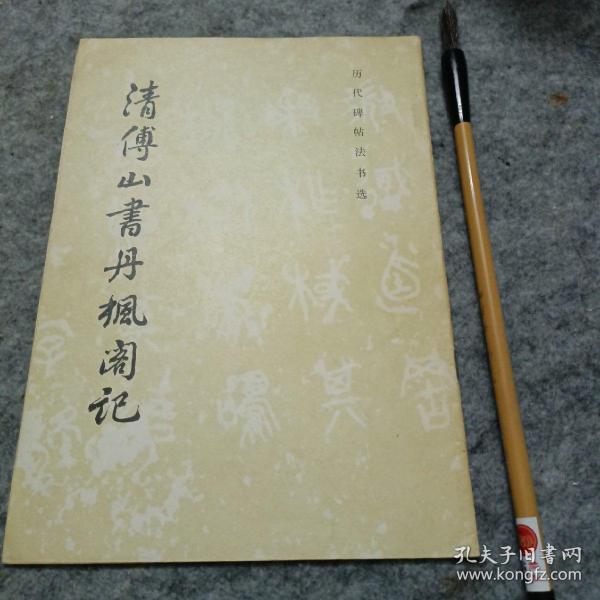 历代碑帖法书选
清傅山書丹楓阁记
孔夫子旧书网
www.kongfz.com